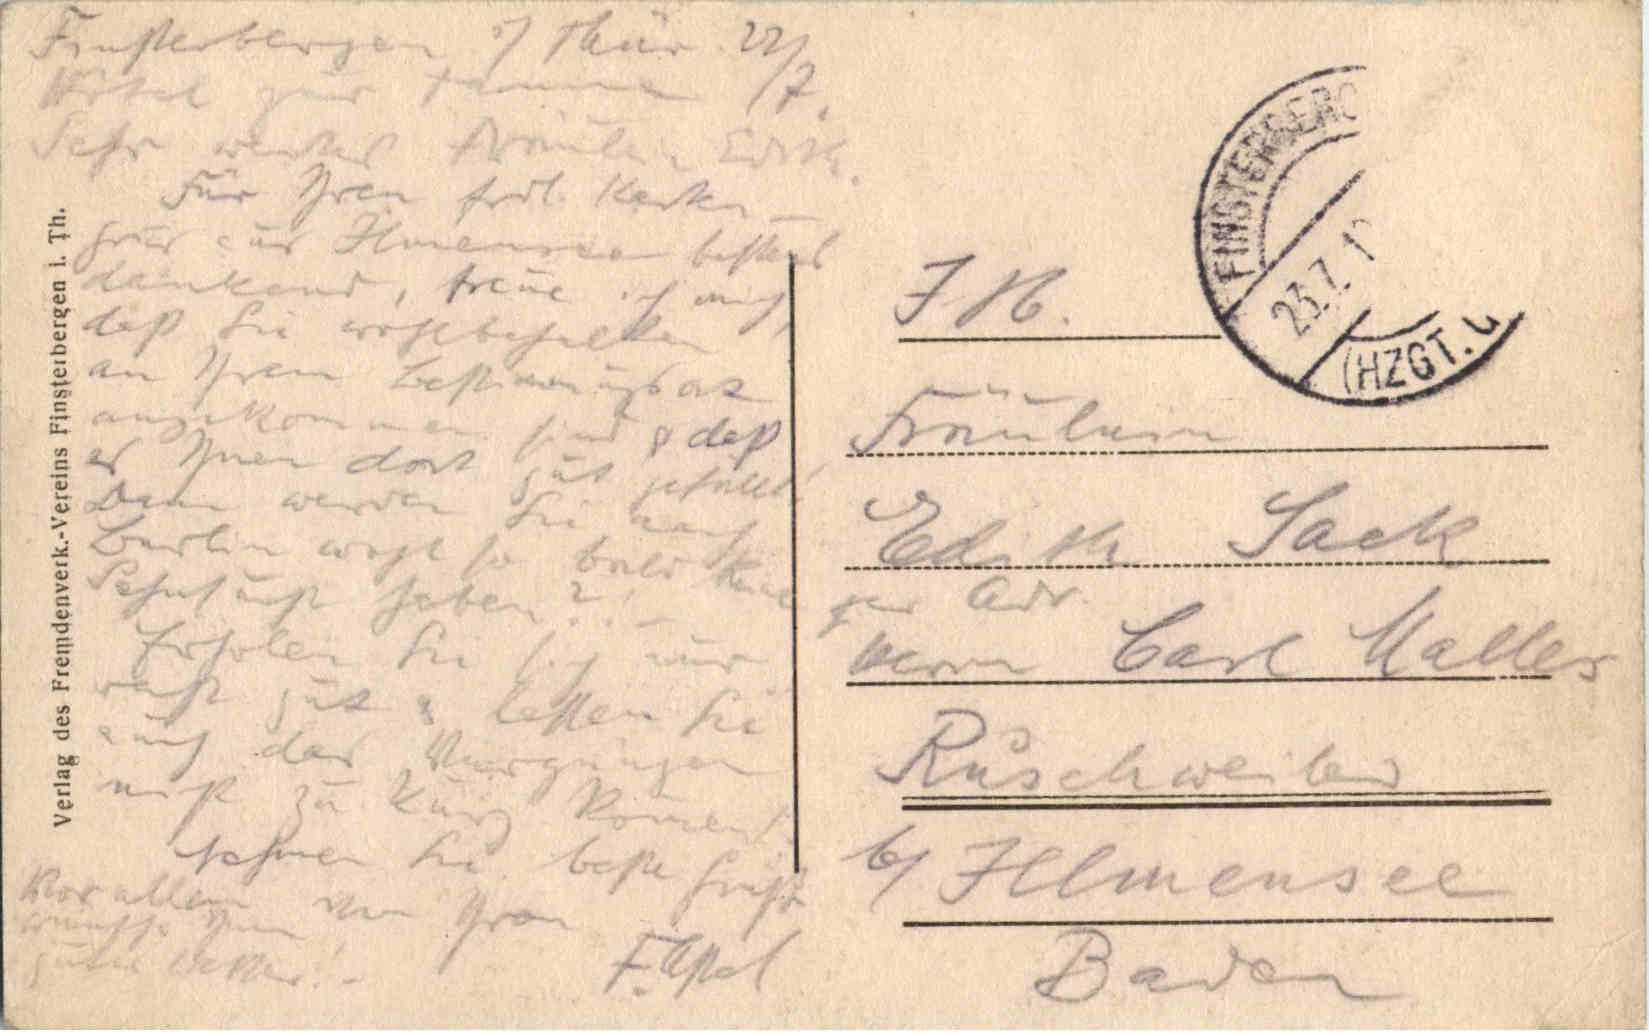 Finsterbergen i/ Thür. 22/7.
Hotel zur Tanne
Sehr wertes Fräulein Edith.
Für Ihren frdl. Karten-
gruß aus Illmensee bestens
dankend, freue ich mich,
daß Sie wohlbehalten
an Ihrem Bestimmungsort
angekommen sind & daß
es Ihnen dort gut gefällt!
Dann werden Sie nach
Berlin wohl so bald keine
Sehnsucht haben?! –
Erholen Sie sich nur
recht gut & lassen Sie
auch das Vergnügen
nicht zu kurz kommen!
Nehmen Sie beste Grüße
von Ihrem
F.
Vor allem
wünsche Ihnen
gutes Wetter! –
Verlag des Fremdenverk.-Vereins Finsterbergen i. Th.
FINSTERBERG
23.7.1
(HZGT. G
I H.
Fräulein
Edith Sack
per Adr.
Herrn Carl Maller
Ruschweiler
b/ Illmensee
Baden